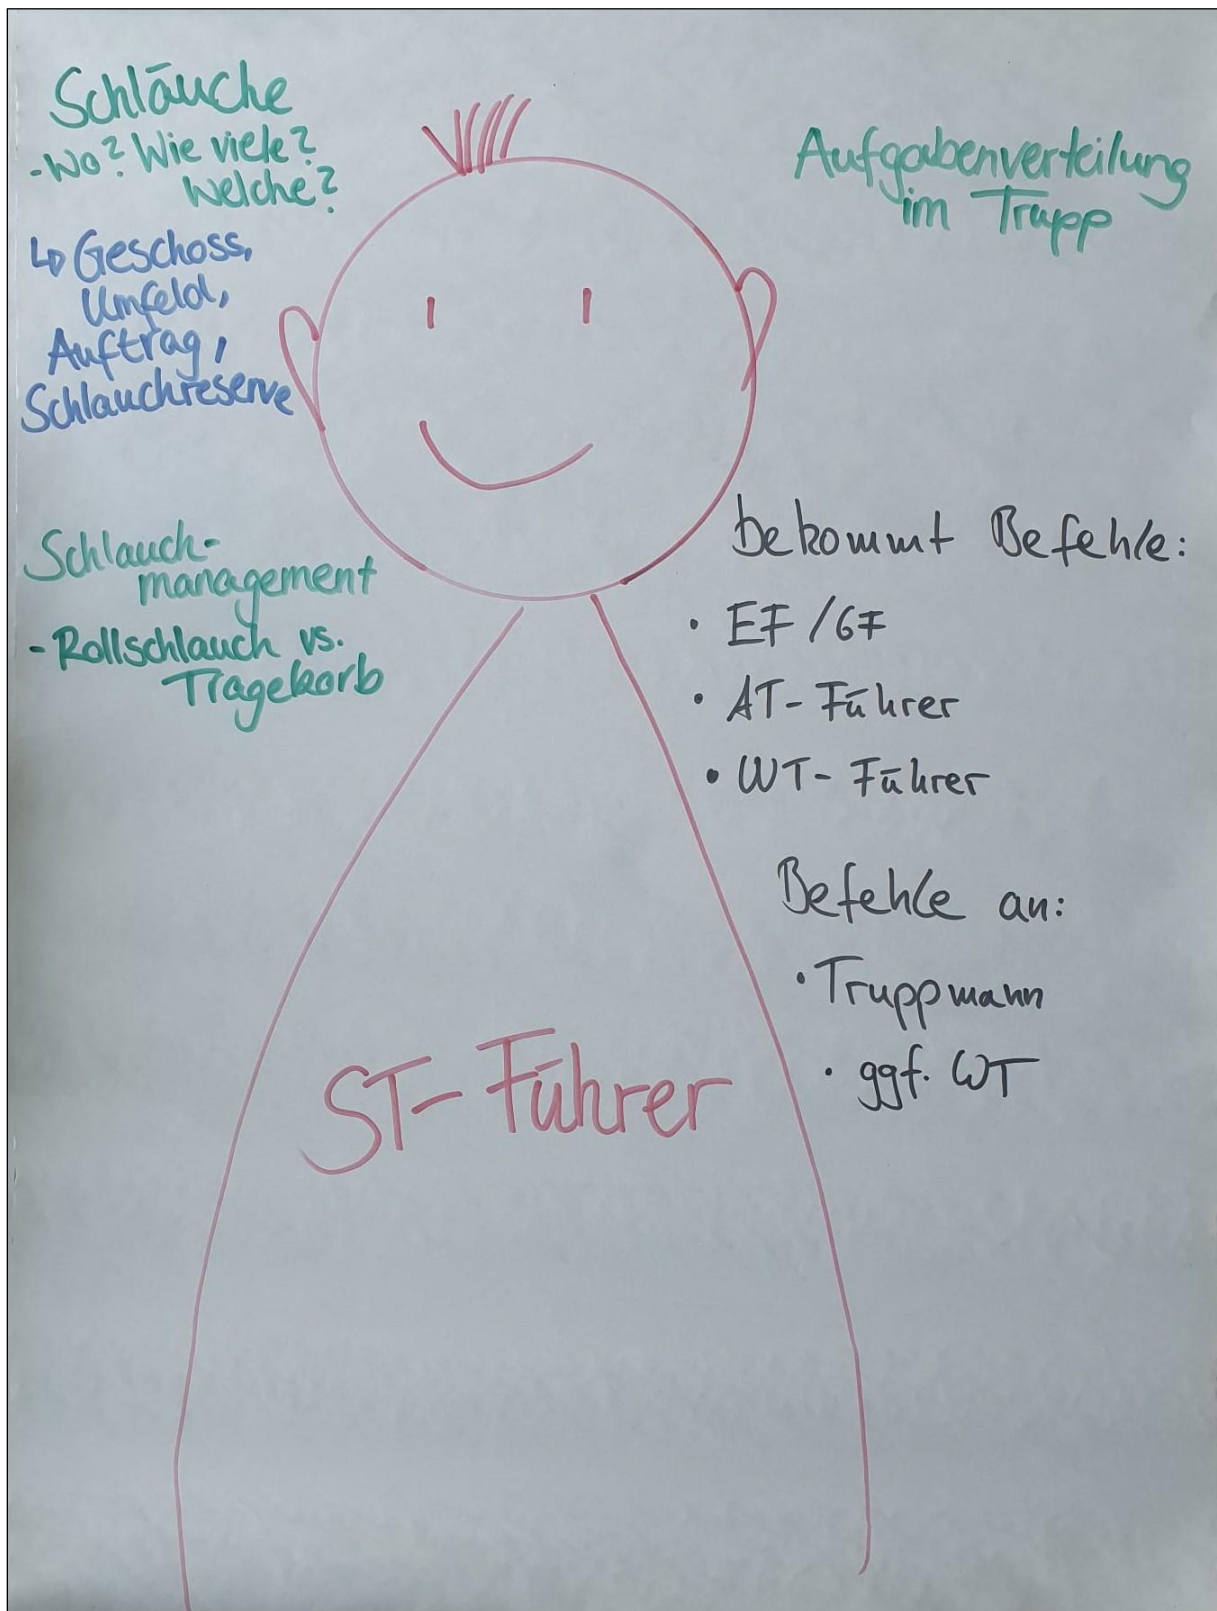 Schläuche
- Wo? Wie viele?
Welche?
↳ Geschoss,
Umfeld,
Auftrag,
Schlauchreserve
Schlauch-
management
- Rollschlauch vs.
Tragekorb
Aufgabenverteilung
im Trupp
bekommt Befehle:
• EF/GF
• AT-Führer
• WT-Führer
Befehle an:
• Truppmann
• ggf. WT
ST-Führer